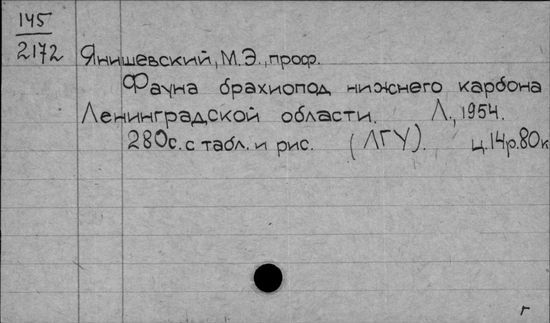 145
2172
Янишевский, М.Э., проф.
Фауна брахиопод нижнего карбона
Ленинградской области. Л., 1954.
280с. с табл. и рис. (ЛГУ). ц.14р.80к
г